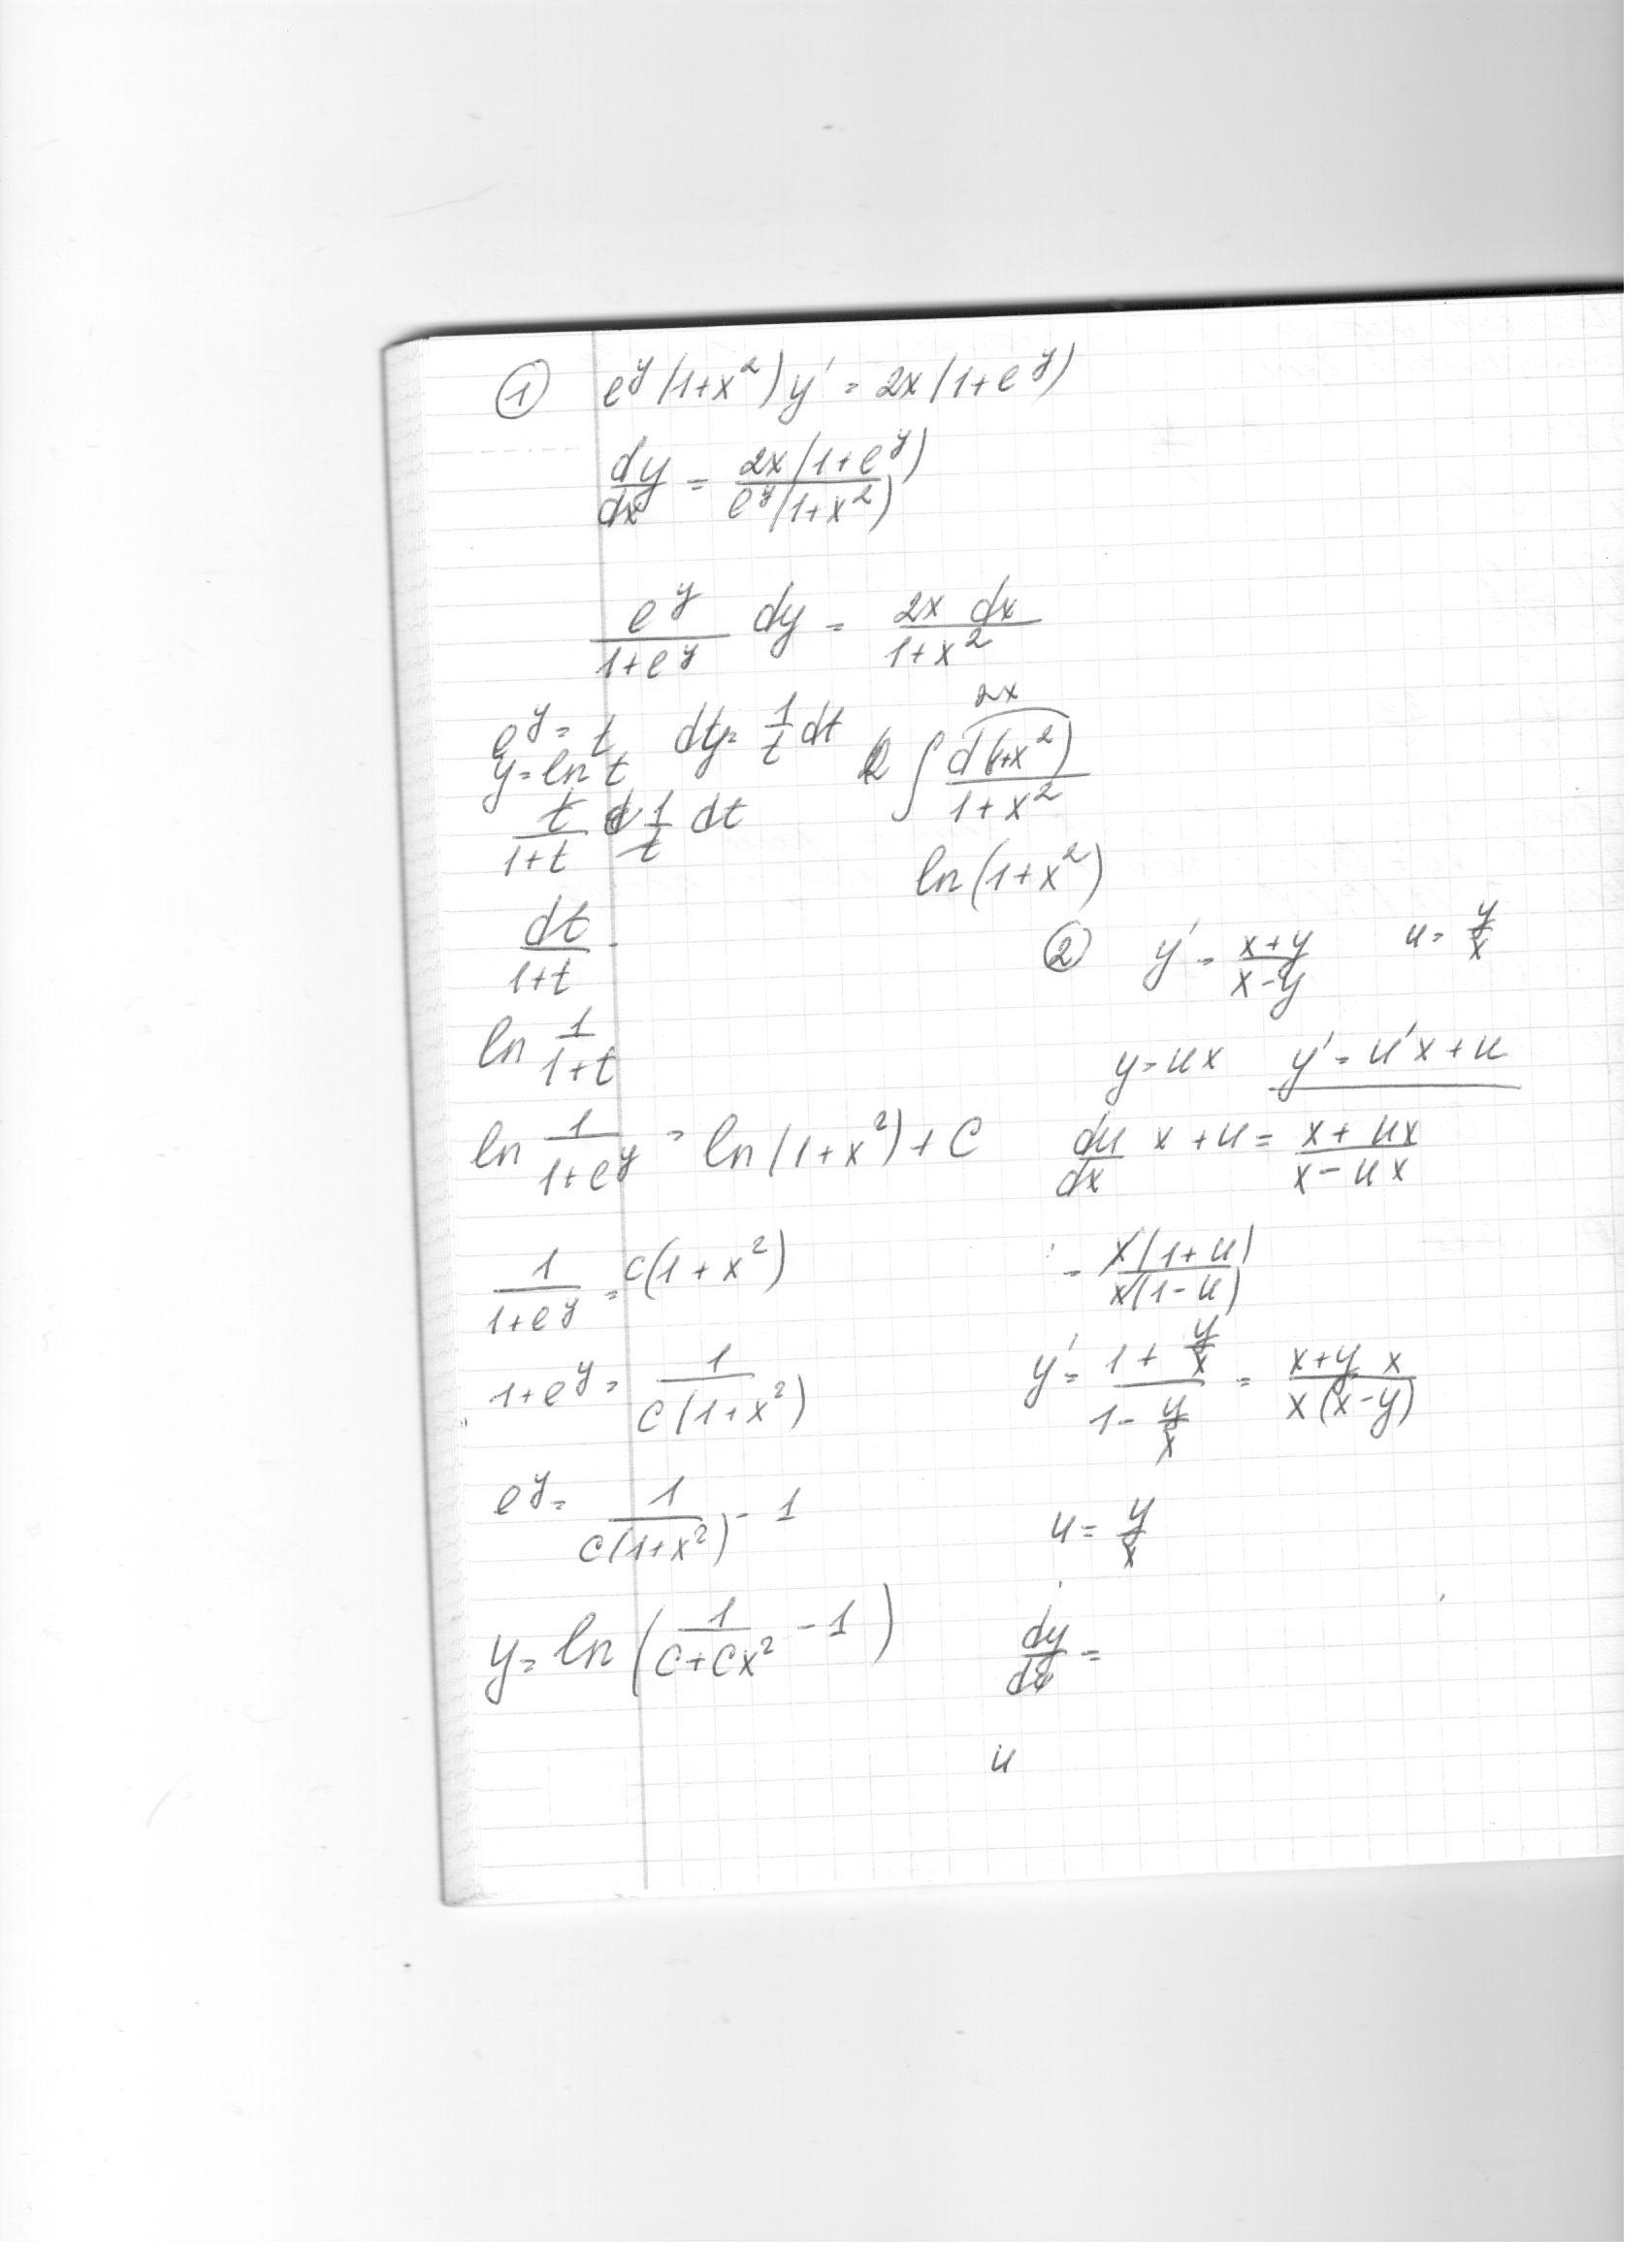 ① e^y (1+x²) y' = 2x (1+e^y)
dy/dx = 2x(1+e^y) / e^y(1+x²)
e^y/(1+e^y) dy = 2x dx/(1+x²)
e^y = t dy = 1/t dt
y = ln t
t/(1+t) 1/t dt
dt/(1+t)
ln 1/(1+t)
2x
∫ d(1+x²)/(1+x²)
ln(1+x²)
ln 1/(1+e^y) = ln(1+x²) + C
1/(1+e^y) = c(1+x²)
1+e^y = 1/(c(1+x²))
e^y = 1/(c(1+x²)) - 1
y = ln(1/(c+cx²) - 1)
② y' = (x+y)/(x-y) u = y/x
y = ux y' = u'x + u
du/dx x + u = (x+ux)/(x-ux)
= x(1+u)/x(1-u)
y' = (1 + y/x)/(1 - y/x) = (x+y x)/(x(x-y))
u = y/x
dy/dx =
u